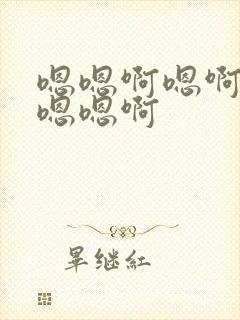 嗯嗯啊嗯啊
嗯嗯啊
畢继紅